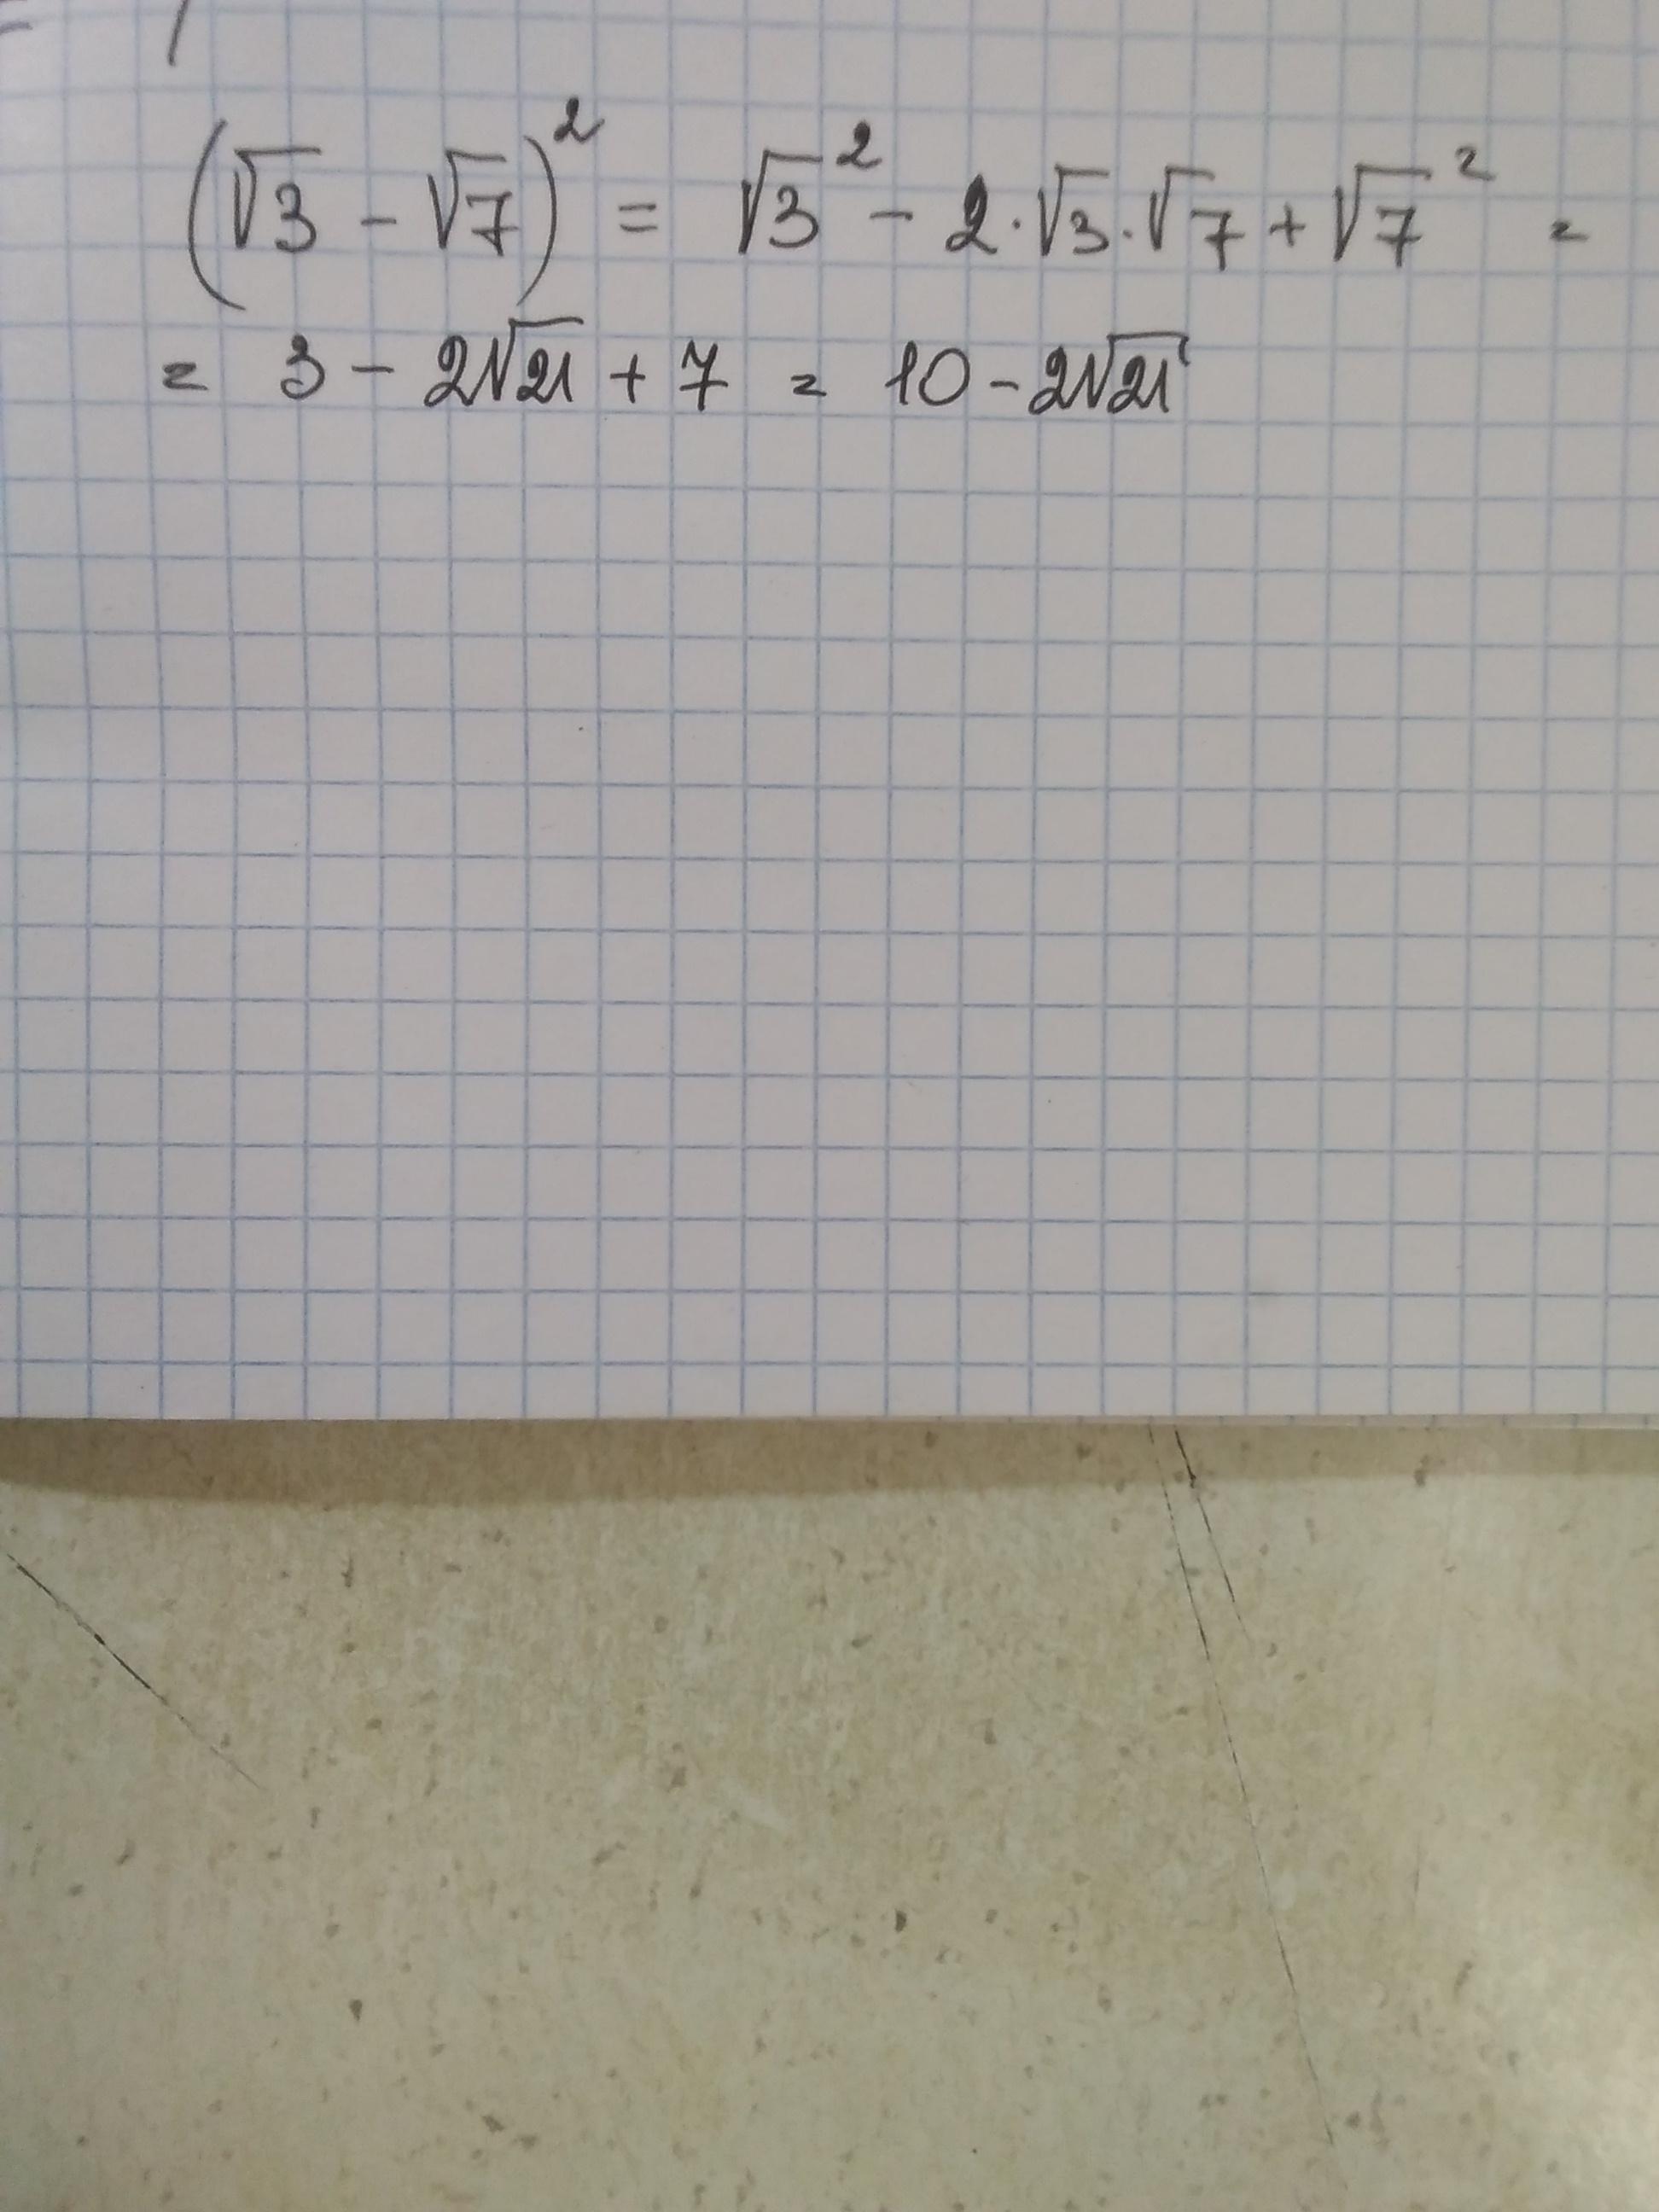 (√3 - √7)² = √3² - 2·√3·√7 + √7² =
= 3 - 2√21 + 7 = 10 - 2√21